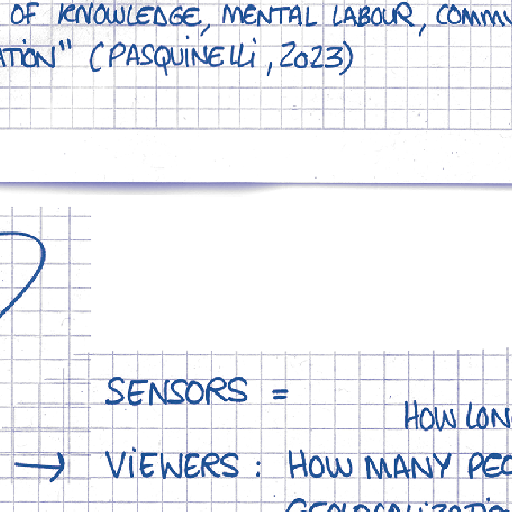 OF KNOWLEDGE, MENTAL LABOUR, COMMU
ATION" (PASQUINELLI, 2023)
SENSORS =
HOW LON
→ VIEWERS : HOW MANY PEO
GEOLOCALIZATIO